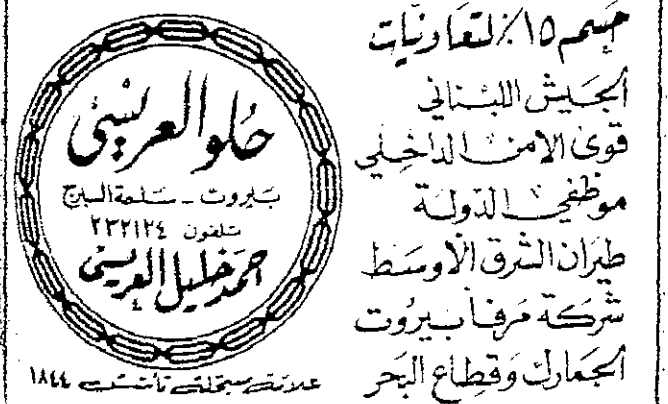 حسم ١٥٪ لتعاونيات
الجيش اللبناني
قوى الامن الداخلي
موظفي الدولة
طيران الشرق الاوسط
شركة مرفأ بيروت
الجمارك وقطاع البحر
حلو العريسي
بيروت - ساحة البرج
تلفون ٢٣٢١٢٤
احمد خليل العريسي
علامة مسجلة تأسست ١٨٤٤